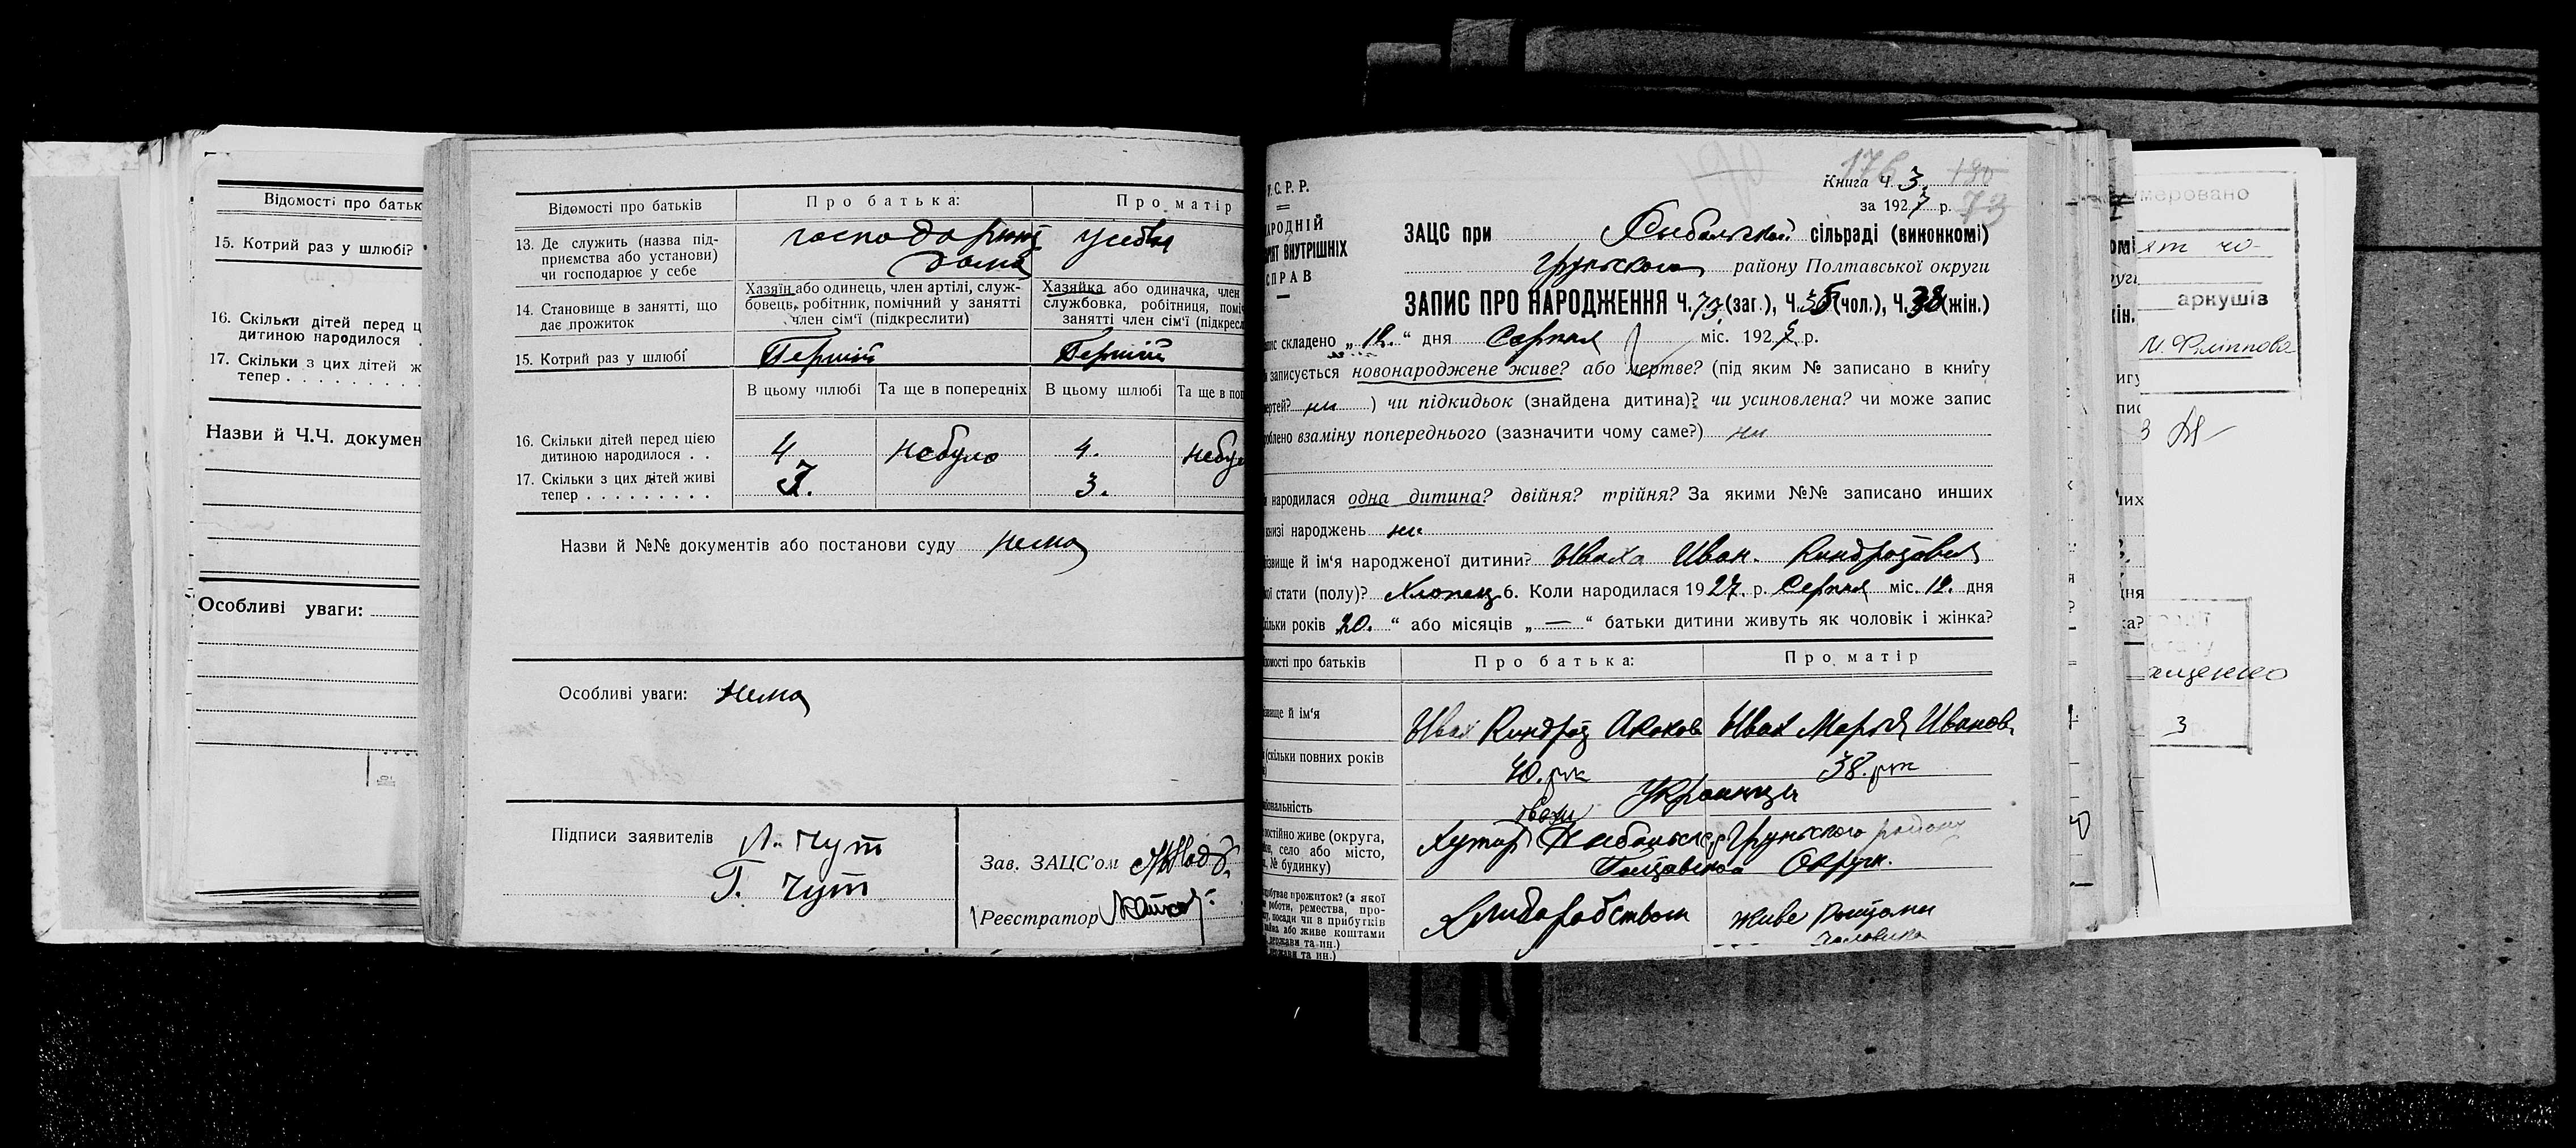 Відомості про батьк
15. Котрий раз у шлюбі?
16. Скільки дітей перед ц
дитиною народилося .
17. Скільки з цих дітей ж
тепер . . . . . . . . .
Назви й Ч.Ч. докумен
Особливі уваги:
Відомості про батьків
Про батька:
Про матір
13. Де служить (назва під-
приємства або установи)
чи господарює у себе
дома
14. Становище в занятті, що
дає прожиток
Хазяїн або одинець, член артілі, служ-
бовець, робітник, помічний у занятті
член сім'ї (підкреслити)
Хазяйка або одиначка, член
службовка, робітниця, поміч
занятті член сім'ї (підкресл
15. Котрий раз у шлюбі
Перший
Перший
В цьому шлюбі
Та ще в попередніх
В цьому шлюбі
Та ще в поп
16. Скільки дітей перед цією
дитиною народилося . .
4
небуло
4.
небул
17. Скільки з цих дітей живі
тепер . . . . . . . . .
3.
3.
Назви й №№ документів або постанови суду нема
Особливі уваги: нема
Підписи заявителів
Л. Чут
Г. Чут
Зав. ЗАЦС'ом
Реєстратор
У.С.Р.Р.
АРОДНІЙ
РІЯТ ВНУТРІШНІХ
СПРАВ
176 180
Книга Ч. 3
за 1927 р. 73
ЗАЦС при сільраді (виконкомі)
Грунського району Полтавської округи
ЗАПИС ПРО НАРОДЖЕННЯ Ч. 73 (заг.), Ч. 35 (чол.), Ч. 38 (жін.)
пис складено „ 12. “ дня Серпня міс. 1927 р.
записується новонароджене живе? або мертве? (під яким № записано в книгу
ертей? ни ) чи підкидьок (знайдена дитина)? чи усиновлена? чи може запис
облено взаміну попереднього (зазначити чому саме?) ни
народилася одна дитина? двійня? трійня? За якими №№ записано инших
книзі народжень ни
звище й ім'я народженої дитини? Иваха Иван. Киндратовия
кої стати (полу)? Хлопец 6. Коли народилася 1927. р. Серпня міс. 12. дня
кільки років 20. “ або місяців „ — “ батьки дитини живуть як чоловік і жінка?
домості про батьків
Про батька:
Про матір
звище й ім'я
Ивах Киндрат
Ивах Марья Иванов
(скільки повних років
40. рик
38. рик
ціональність
Украинци
постійно живе (округа,
он, село або місто,
№ будинку)
Хутор Грунського району
Полтавской Округи.
добуває прожиток? (з якої
роботи, ремества, про-
посади чи в прибутків
майна або живе коштами
держави та ин.)
Хлиборобством
живе
чоловика
меровано
аркушів
М. Філіппова
3
ащенко
3